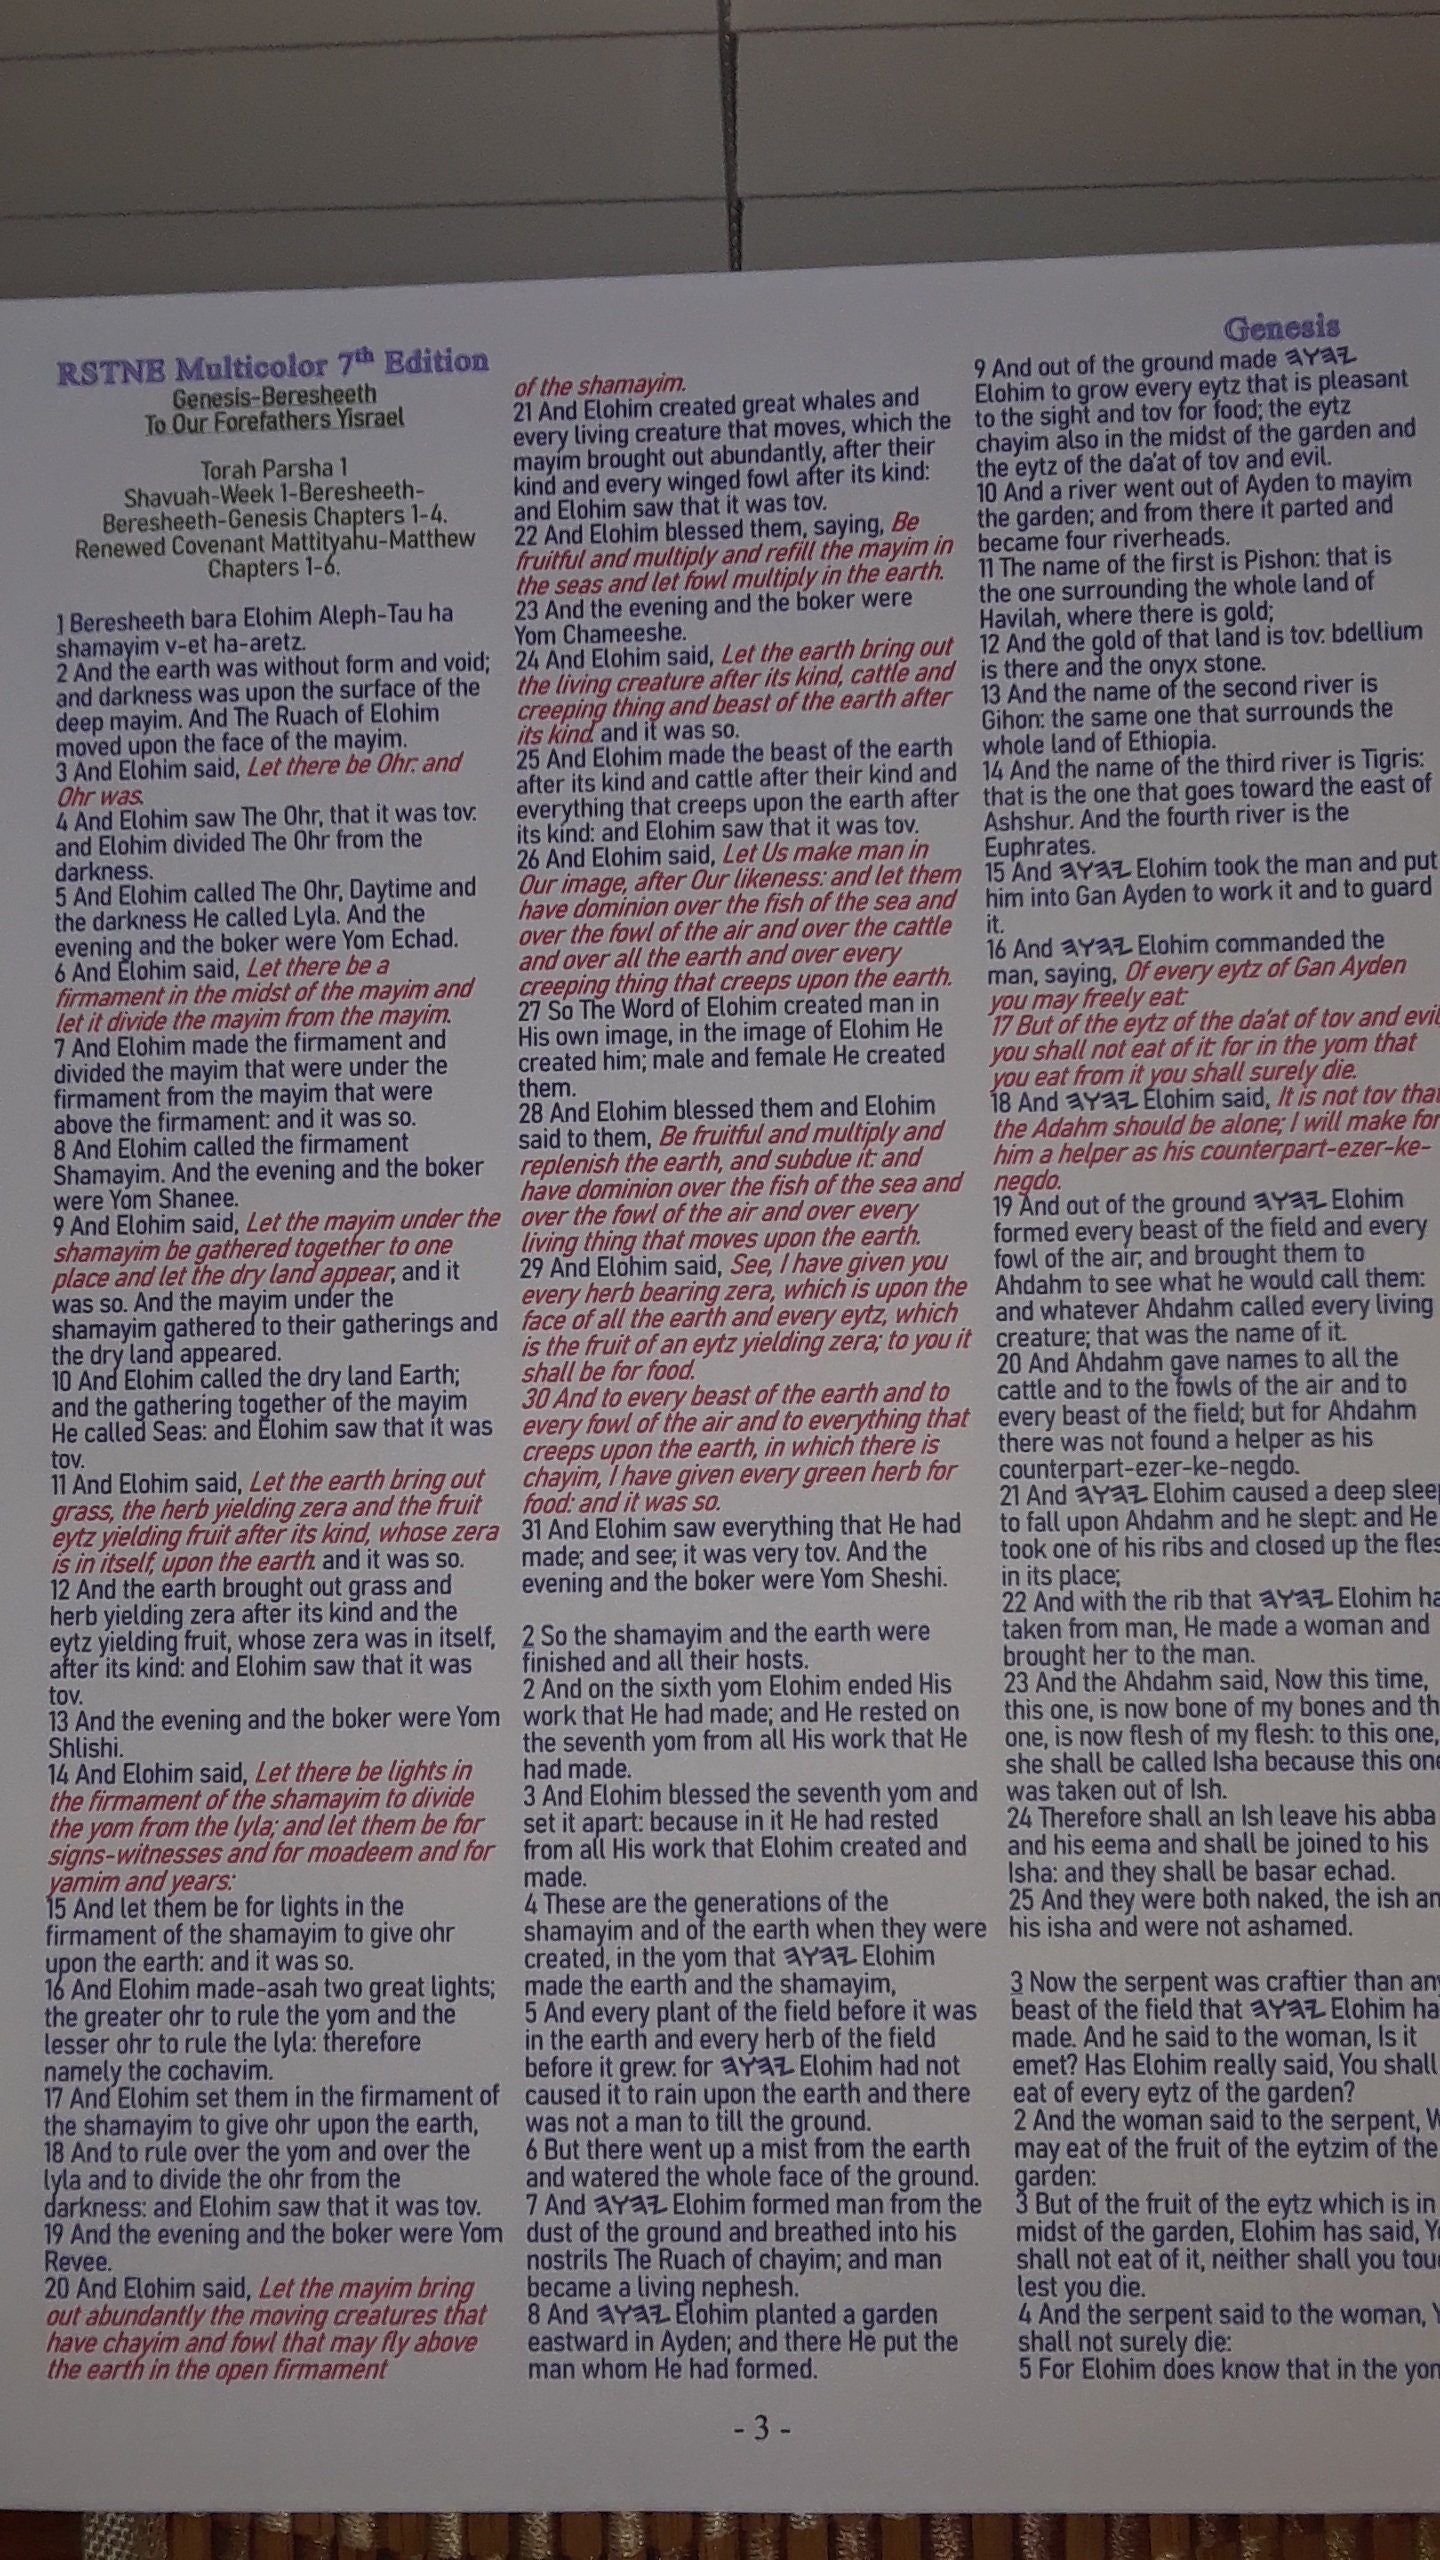 RSTNE Multicolor 7th Edition
Genesis-Beresheeth
To Our Forefathers Yisrael
Torah Parsha 1
Shavuah-Week 1-Beresheeth-
Beresheeth-Genesis Chapters 1-4.
Renewed Covenant Mattityahu-Matthew
Chapters 1-6.
1 Beresheeth bara Elohim Aleph-Tau ha
shamayim v-et ha-aretz.
2 And the earth was without form and void;
and darkness was upon the surface of the
deep mayim. And The Ruach of Elohim
moved upon the face of the mayim.
3 And Elohim said, Let there be Ohr: and
Ohr was.
4 And Elohim saw The Ohr, that it was tov:
and Elohim divided The Ohr from the
darkness.
5 And Elohim called The Ohr, Daytime and
the darkness He called Lyla. And the
evening and the boker were Yom Echad.
6 And Elohim said, Let there be a
firmament in the midst of the mayim and
let it divide the mayim from the mayim.
7 And Elohim made the firmament and
divided the mayim that were under the
firmament from the mayim that were
above the firmament: and it was so.
8 And Elohim called the firmament
Shamayim. And the evening and the boker
were Yom Shanee.
9 And Elohim said, Let the mayim under the
shamayim be gathered together to one
place and let the dry land appear, and it
was so. And the mayim under the
shamayim gathered to their gatherings and
the dry land appeared.
10 And Elohim called the dry land Earth;
and the gathering together of the mayim
He called Seas: and Elohim saw that it was
tov.
11 And Elohim said, Let the earth bring out
grass, the herb yielding zera and the fruit
eytz yielding fruit after its kind, whose zera
is in itself, upon the earth: and it was so.
12 And the earth brought out grass and
herb yielding zera after its kind and the
eytz yielding fruit, whose zera was in itself,
after its kind: and Elohim saw that it was
tov.
13 And the evening and the boker were Yom
Shlishi.
14 And Elohim said, Let there be lights in
the firmament of the shamayim to divide
the yom from the lyla; and let them be for
signs-witnesses and for moadeem and for
yamim and years:
15 And let them be for lights in the
firmament of the shamayim to give ohr
upon the earth: and it was so.
16 And Elohim made-asah two great lights;
the greater ohr to rule the yom and the
lesser ohr to rule the lyla: therefore
namely the cochavim.
17 And Elohim set them in the firmament of
the shamayim to give ohr upon the earth,
18 And to rule over the yom and over the
lyla and to divide the ohr from the
darkness: and Elohim saw that it was tov.
19 And the evening and the boker were Yom
Revee.
20 And Elohim said, Let the mayim bring
out abundantly the moving creatures that
have chayim and fowl that may fly above
the earth in the open firmament
of the shamayim.
21 And Elohim created great whales and
every living creature that moves, which the
mayim brought out abundantly, after their
kind and every winged fowl after its kind:
and Elohim saw that it was tov.
22 And Elohim blessed them, saying, Be
fruitful and multiply and refill the mayim in
the seas and let fowl multiply in the earth.
23 And the evening and the boker were
Yom Chameeshe.
24 And Elohim said, Let the earth bring out
the living creature after its kind, cattle and
creeping thing and beast of the earth after
its kind: and it was so.
25 And Elohim made the beast of the earth
after its kind and cattle after their kind and
everything that creeps upon the earth after
its kind: and Elohim saw that it was tov.
26 And Elohim said, Let Us make man in
Our image, after Our likeness: and let them
have dominion over the fish of the sea and
over the fowl of the air and over the cattle
and over all the earth and over every
creeping thing that creeps upon the earth.
27 So The Word of Elohim created man in
His own image, in the image of Elohim He
created him; male and female He created
them.
28 And Elohim blessed them and Elohim
said to them, Be fruitful and multiply and
replenish the earth, and subdue it: and
have dominion over the fish of the sea and
over the fowl of the air and over every
living thing that moves upon the earth.
29 And Elohim said, See, I have given you
every herb bearing zera, which is upon the
face of all the earth and every eytz, which
is the fruit of an eytz yielding zera; to you it
shall be for food.
30 And to every beast of the earth and to
every fowl of the air and to everything that
creeps upon the earth, in which there is
chayim, I have given every green herb for
food: and it was so.
31 And Elohim saw everything that He had
made; and see; it was very tov. And the
evening and the boker were Yom Sheshi.
2 So the shamayim and the earth were
finished and all their hosts.
2 And on the sixth yom Elohim ended His
work that He had made; and He rested on
the seventh yom from all His work that He
had made.
3 And Elohim blessed the seventh yom and
set it apart: because in it He had rested
from all His work that Elohim created and
made.
4 These are the generations of the
shamayim and of the earth when they were
created, in the yom that 𐤉𐤄𐤅𐤄 Elohim
made the earth and the shamayim,
5 And every plant of the field before it was
in the earth and every herb of the field
before it grew: for 𐤉𐤄𐤅𐤄 Elohim had not
caused it to rain upon the earth and there
was not a man to till the ground.
6 But there went up a mist from the earth
and watered the whole face of the ground.
7 And 𐤉𐤄𐤅𐤄 Elohim formed man from the
dust of the ground and breathed into his
nostrils The Ruach of chayim; and man
became a living nephesh.
8 And 𐤉𐤄𐤅𐤄 Elohim planted a garden
eastward in Ayden; and there He put the
man whom He had formed.
Genesis
9 And out of the ground made 𐤉𐤄𐤅𐤄
Elohim to grow every eytz that is pleasant
to the sight and tov for food; the eytz
chayim also in the midst of the garden and
the eytz of the da'at of tov and evil.
10 And a river went out of Ayden to mayim
the garden; and from there it parted and
became four riverheads.
11 The name of the first is Pishon: that is
the one surrounding the whole land of
Havilah, where there is gold;
12 And the gold of that land is tov: bdellium
is there and the onyx stone.
13 And the name of the second river is
Gihon: the same one that surrounds the
whole land of Ethiopia.
14 And the name of the third river is Tigris:
that is the one that goes toward the east of
Ashshur. And the fourth river is the
Euphrates.
15 And 𐤉𐤄𐤅𐤄 Elohim took the man and put
him into Gan Ayden to work it and to guard
it.
16 And 𐤉𐤄𐤅𐤄 Elohim commanded the
man, saying, Of every eytz of Gan Ayden
you may freely eat:
17 But of the eytz of the da'at of tov and evil
you shall not eat of it: for in the yom that
you eat from it you shall surely die.
18 And 𐤉𐤄𐤅𐤄 Elohim said, It is not tov that
the Adahm should be alone; I will make for
him a helper as his counterpart-ezer-ke-
negdo.
19 And out of the ground 𐤉𐤄𐤅𐤄 Elohim
formed every beast of the field and every
fowl of the air, and brought them to
Ahdahm to see what he would call them:
and whatever Ahdahm called every living
creature; that was the name of it.
20 And Ahdahm gave names to all the
cattle and to the fowls of the air and to
every beast of the field; but for Ahdahm
there was not found a helper as his
counterpart-ezer-ke-negdo.
21 And 𐤉𐤄𐤅𐤄 Elohim caused a deep sleep
to fall upon Ahdahm and he slept: and He
took one of his ribs and closed up the
in its place;
22 And with the rib that 𐤉𐤄𐤅𐤄 Elohim
taken from man, He made a woman and
brought her to the man.
23 And the Ahdahm said, Now this time,
this one, is now bone of my bones and
one, is now flesh of my flesh: to this one,
she shall be called Isha because this one
was taken out of Ish.
24 Therefore shall an Ish leave his abba
and his eema and shall be joined to his
Isha: and they shall be basar echad.
25 And they were both naked, the ish
his isha and were not ashamed.
3 Now the serpent was craftier than
beast of the field that 𐤉𐤄𐤅𐤄 Elohim
made. And he said to the woman, Is it
emet? Has Elohim really said, You shall
eat of every eytz of the garden?
2 And the woman said to the serpent,
may eat of the fruit of the eytzim of the
garden:
3 But of the fruit of the eytz which is in
midst of the garden, Elohim has said,
shall not eat of it, neither shall you
lest you die.
4 And the serpent said to the woman,
shall not surely die:
5 For Elohim does know that in the
- 3 -